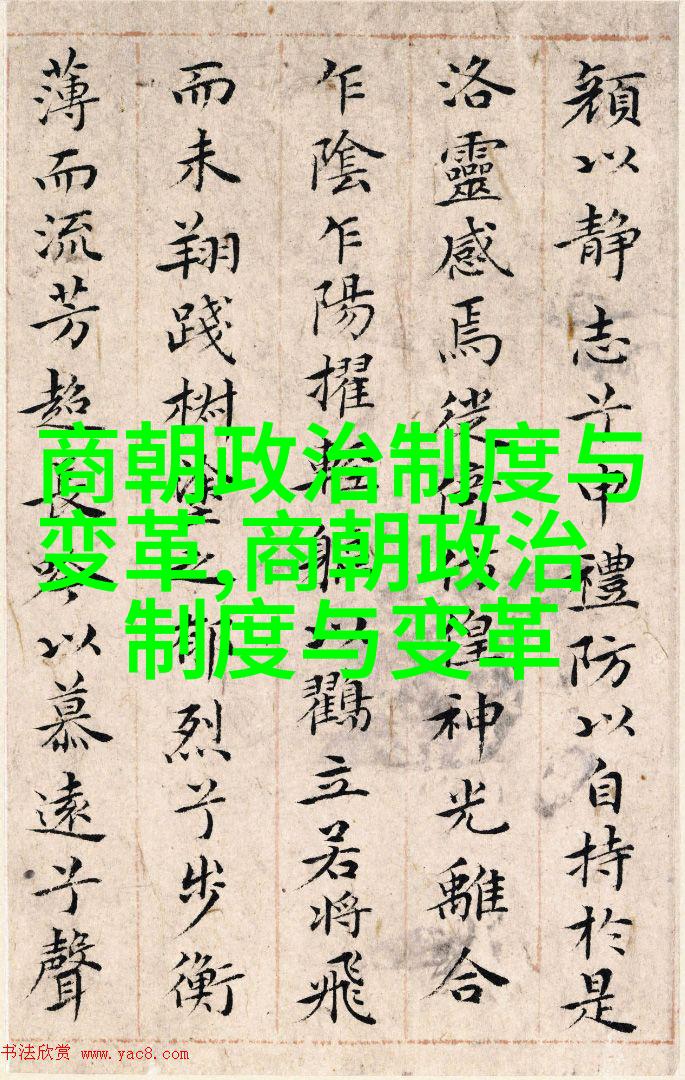 顔以靜志兮申禮防以自持於是
洛靈感焉徙倚徨神光離合
乍陰乍陽擢輕軀以鸛立若將飛
而未翔踐椒塗之郁烈兮步衡
薄而流芳超長吟以慕遠兮聲
商朝政治制度与
变革,商朝政治
制度与变革
书法欣赏 www.yac8.com